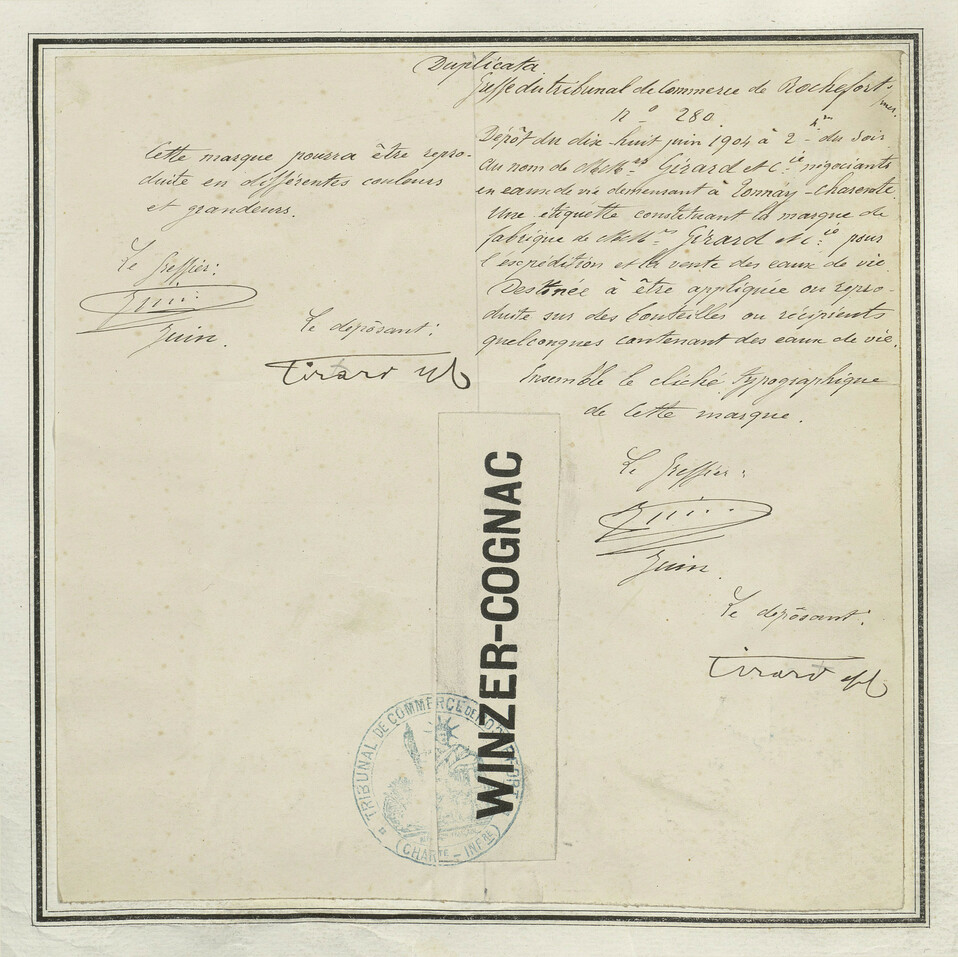 Duplicata
Greffe du tribunal de Commerce de Rochefort s/mer.
N° 280.
Dépôt du dix-huit juin 1904 à 2 h.res du soir
Au nom de MM.rs Gérard et C.ie négociants
en eaux de vie demeurant à Tonnay-Charente.
Une étiquette constituant la marque de
fabrique de MM.rs Gérard et C.ie pour
l'expédition et la vente des eaux de vie.
Destinée à être appliquée ou repro-
duite sur des bouteilles ou récipients
quelconques contenant des eaux de vie.
Ensemble le cliché typographique
de cette marque.
Le Greffier:
Juin.
Le dépôsant:
Cette marque pourra être repro-
duite en différentes couleurs
et grandeurs.
Le Greffier:
Juin.
Le dépôsant:
WINZER-COGNAC
TRIBUNAL DE COMMERCE DE ROCHEFORT
(CHAR.TE - INF.RE)